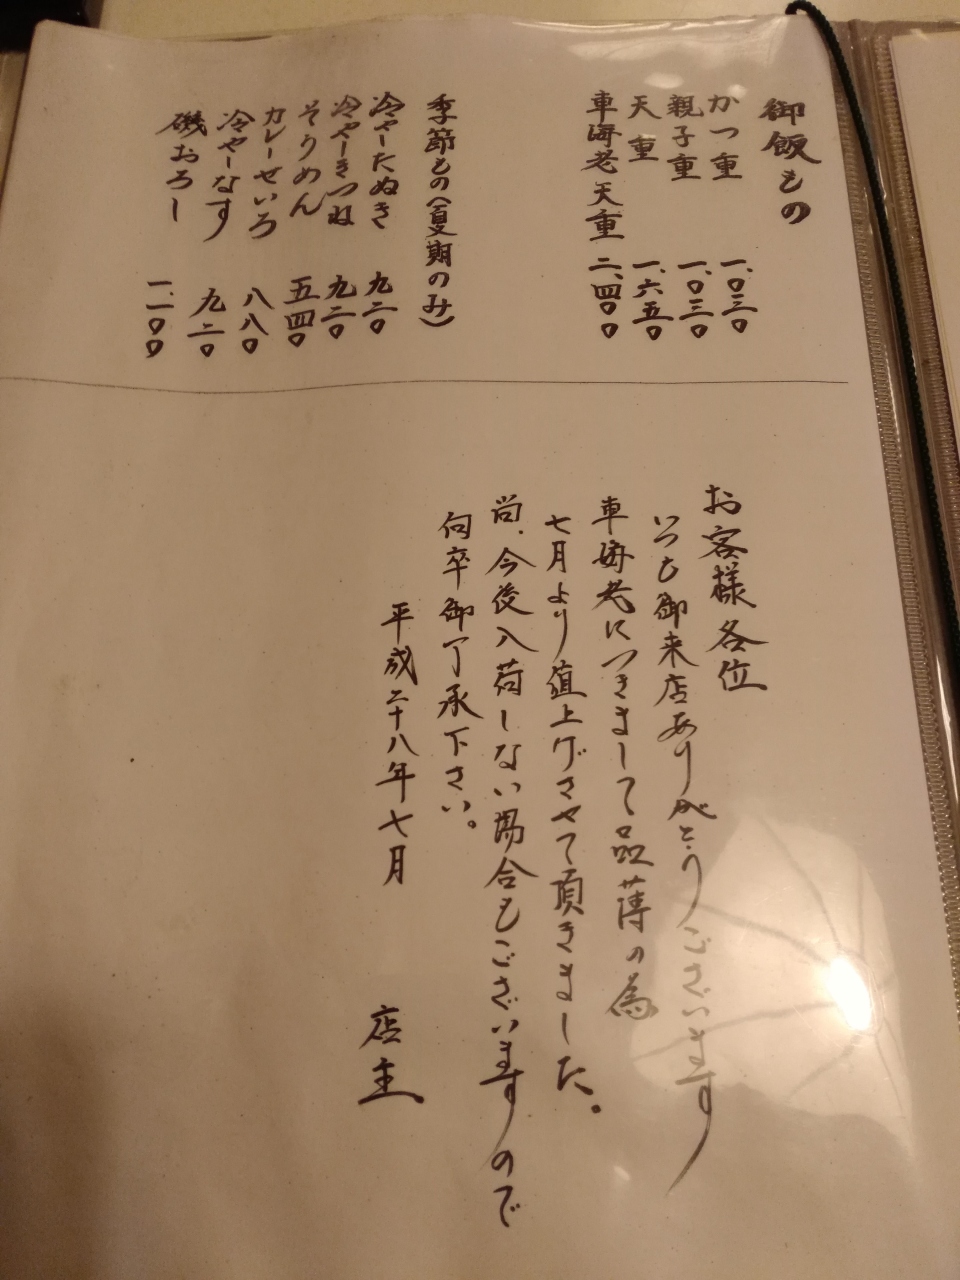 御飯もの
かつ重 一、〇三〇
親子重 一、〇三〇
天重 一、六五〇
車海老天重 二、四〇〇
季節もの(夏期のみ)
冷やしたぬき 九二〇
冷やしきつね 九二〇
そうめん 五四〇
カレーせいろ 八八〇
冷やしなす 九二〇
磯おろし 一、一〇〇
お客様各位
いつも御来店ありがとうございます
車海老につきまして品薄の為
七月より値上げさせて頂きました。
尚、今後入荷しない場合もございますので
何卒御了承下さい。
平成二十八年七月
店主